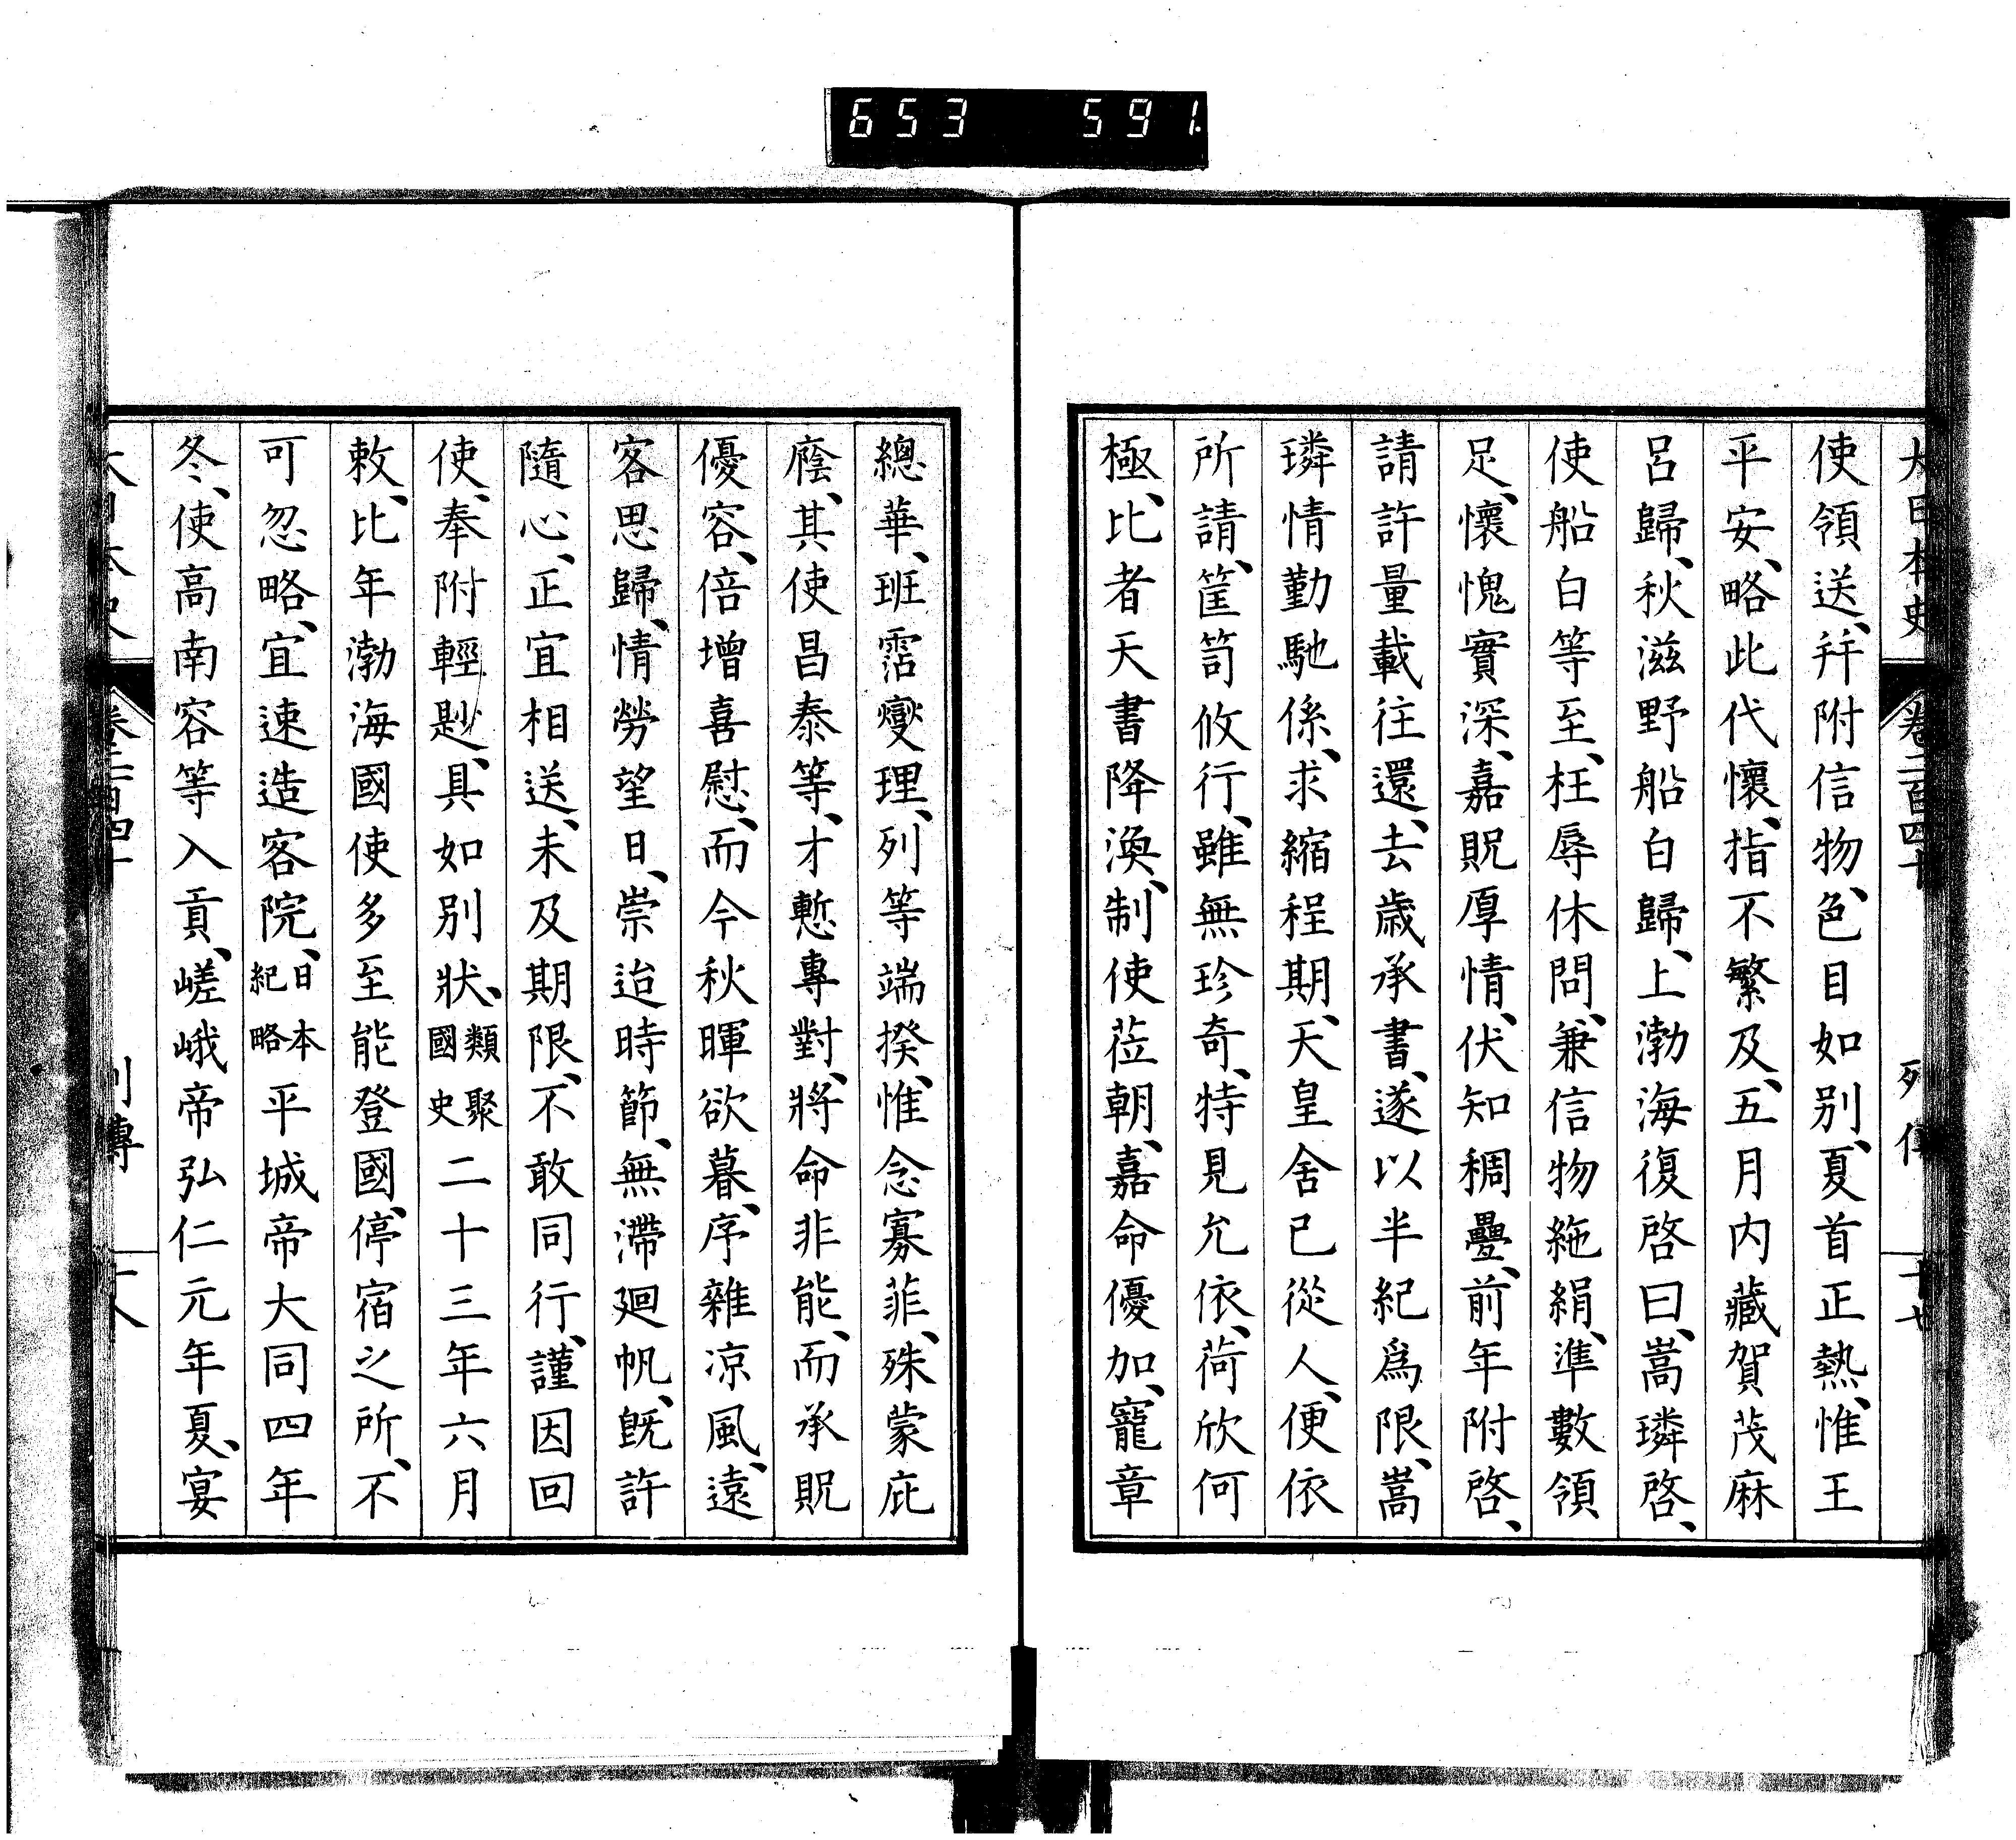 653 591.
大日本史 卷二百四十 列傳 十七
使領送、幷附信物、色目如別、夏首正熱、惟王
平安、略此代懷、指不繁及、五月内藏賀茂麻
呂歸、秋滋野船白歸、上渤海復啓曰、嵩璘啓、
使船白等至、枉辱休問、兼信物絁絹、準數領
足、懷愧實深、嘉貺厚情、伏知稠疊、前年附啓、
請許量載往還、去歲承書、遂以半紀爲限、嵩
璘情勤馳係、求縮程期、天皇舍已從人、便依
所請、筐笥攸行、雖無珍奇、特見允依、荷欣何
極、比者天書降渙、制使莅朝、嘉命優加、寵章
總華、班霑燮理、列等端揆、惟念寡菲、殊蒙庇
廕、其使昌泰等、才慙專對、將命非能、而承貺
優容、倍增喜慰、而今秋暉欲暮、序雜凉風、遠
客思歸、情勞望日、崇迨時節、無滯廻帆、旣許
隨心、正宜相送、未及期限、不敢同行、謹因回
使、奉附輕尟、具如別狀、類聚國史二十三年六月
敕、比年渤海國使多至能登國、停宿之所、不
可忽略、宜速造客院、日本紀略平城帝大同四年
冬、使高南容等入貢、嵯峨帝弘仁元年夏、宴
大日本史 卷二百四十 列傳 十八